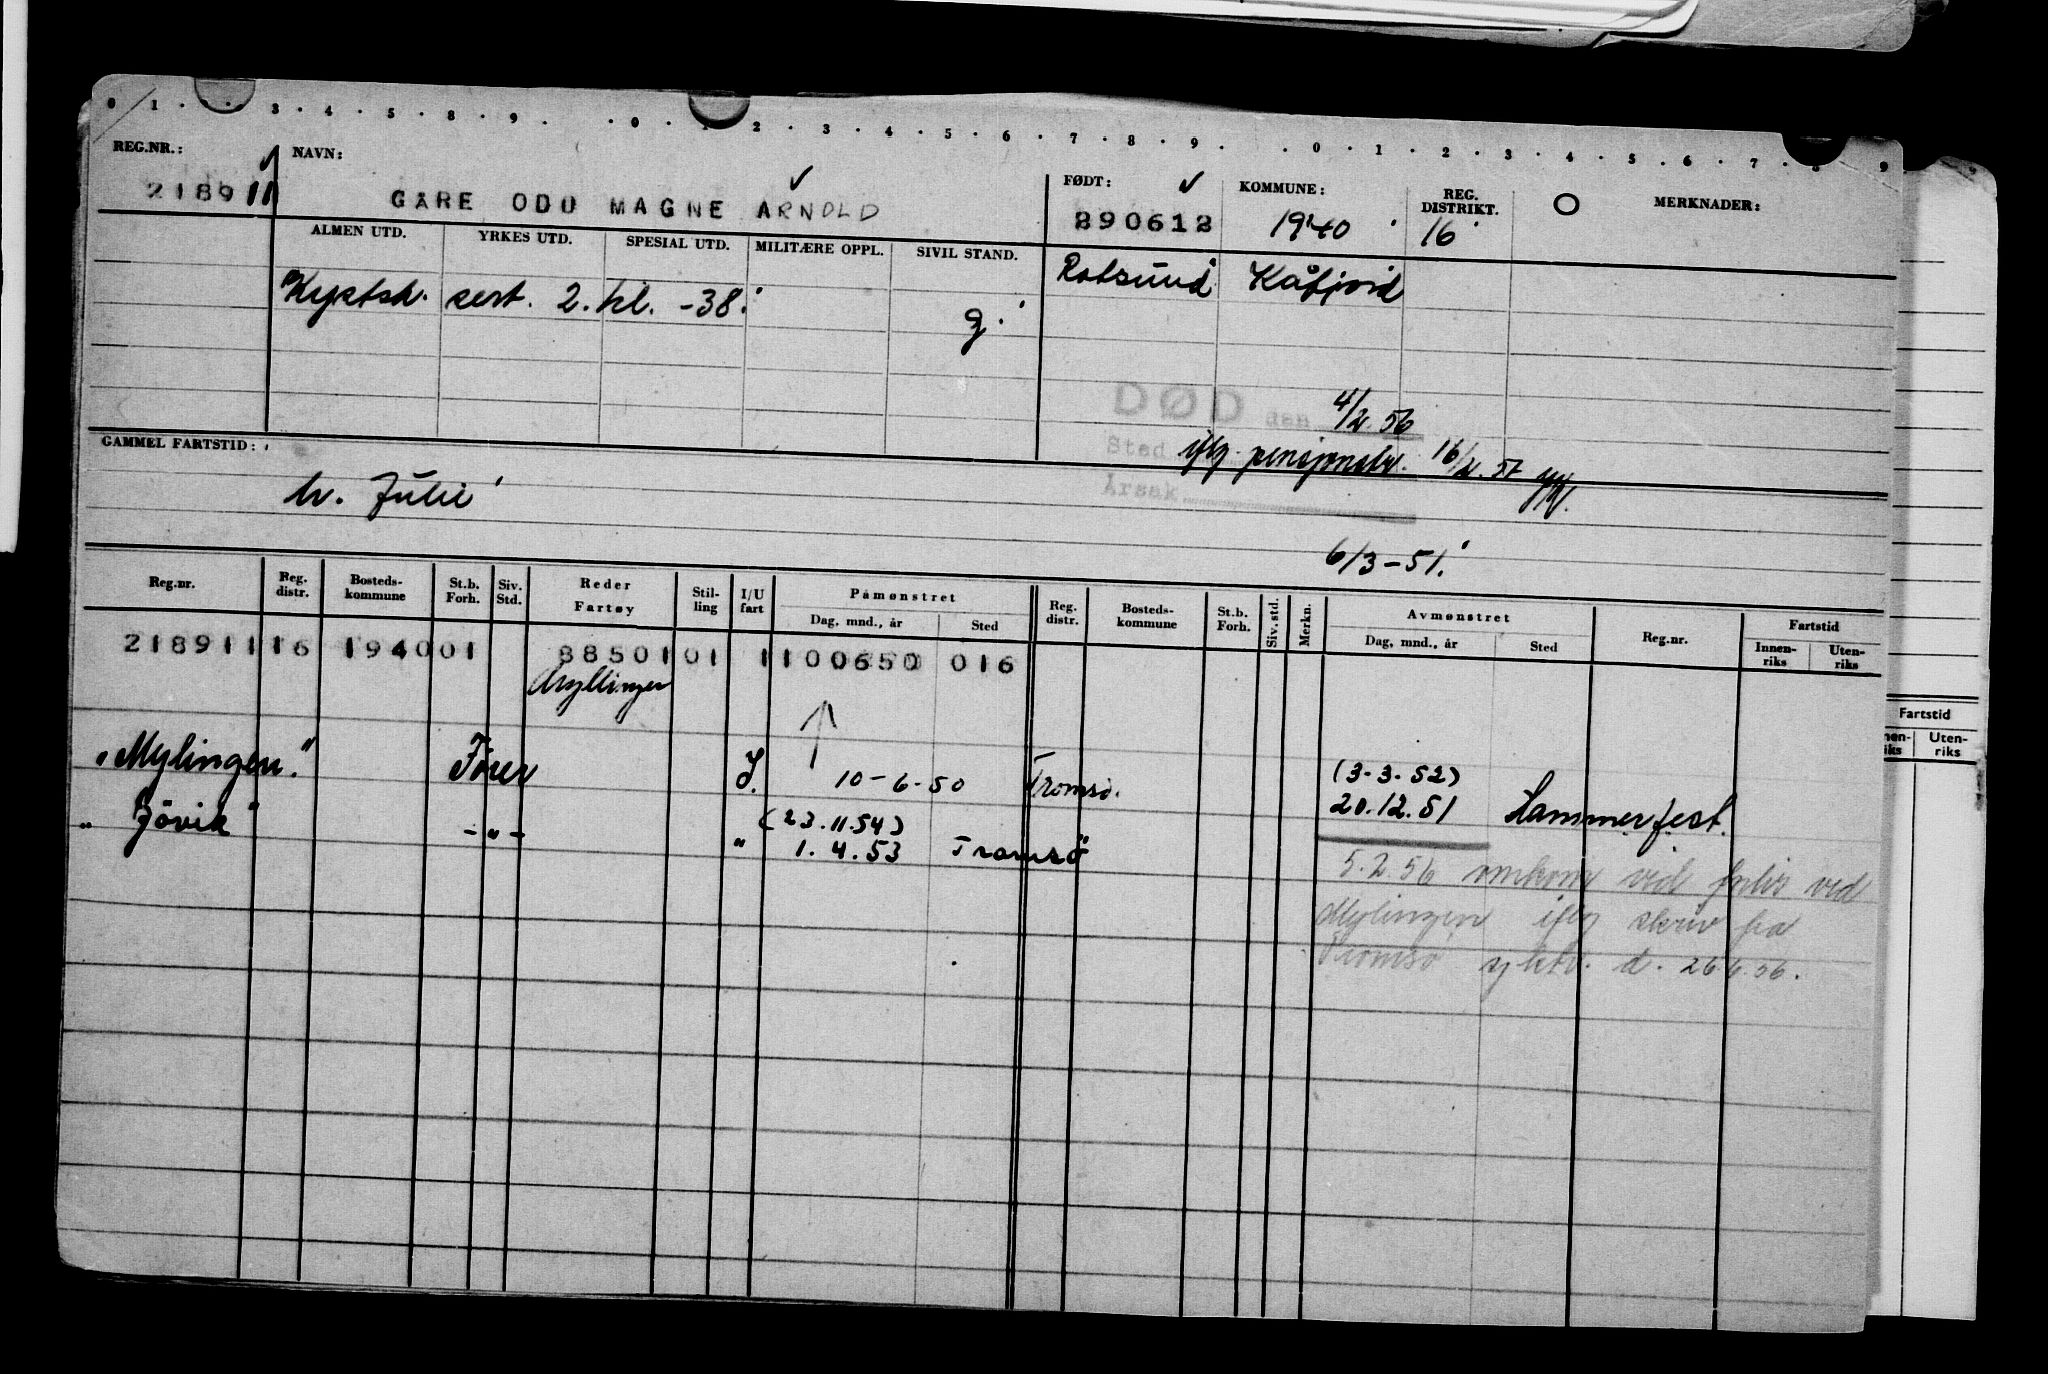 0 1 . . . 3 . 4 . 5 . 8 . 9 . . 0 . 1 2 . 3 . 4 . 5 . 6 . 7 . 8 . 9 . . 0 . 1 . 2 . 3 . 4 . 5 . 6 . 7 . 8 . 9
REG.NR.: NAVN: FØDT: KOMMUNE: REG. DISTRIKT. MERKNADER:
218911 GARE ODD MAGNE ARNOLD 290612 1940 16
ALMEN UTD. YRKES UTD. SPESIAL UTD. MILITÆRE OPPL. SIVIL STAND.
Kystsk. sert. 2. kl. -38. g. Rotsund Kåfjord
DØD den 4/2 56
Sted iflg. pensjonstr. 16/2. 57
Årsak
GAMMEL FARTSTID:
m. Julie
6/3-51.
Reg.nr. Reg. distr. Bosteds-kommune St.b. Forh. Siv. Std. Reder Fartøy Stil-ling I/U fart Påmønstret Dag, mnd., år Sted Reg. distr. Bosteds-kommune St.b. Forh. Siv. std. Merkn. Avmønstret Dag, mnd., år Sted Reg.nr. Fartstid Innen-riks Uten-riks
218911 16 1940 01 88501 01 1 100650 016
Myllingen
"Mylingen." Fører I. 10-6-50 Tromsø. (3-3-52)
20.12.51 Hammerfest.
"Jövik" -"- " (23.11.54)
1.4.53 Tromsö
5.2.56 omkom vid forlis vid
Mylingen iflg skriv fra
Tromsø d. 26.6.56.
Fartstid
nen-iks Uten-riks